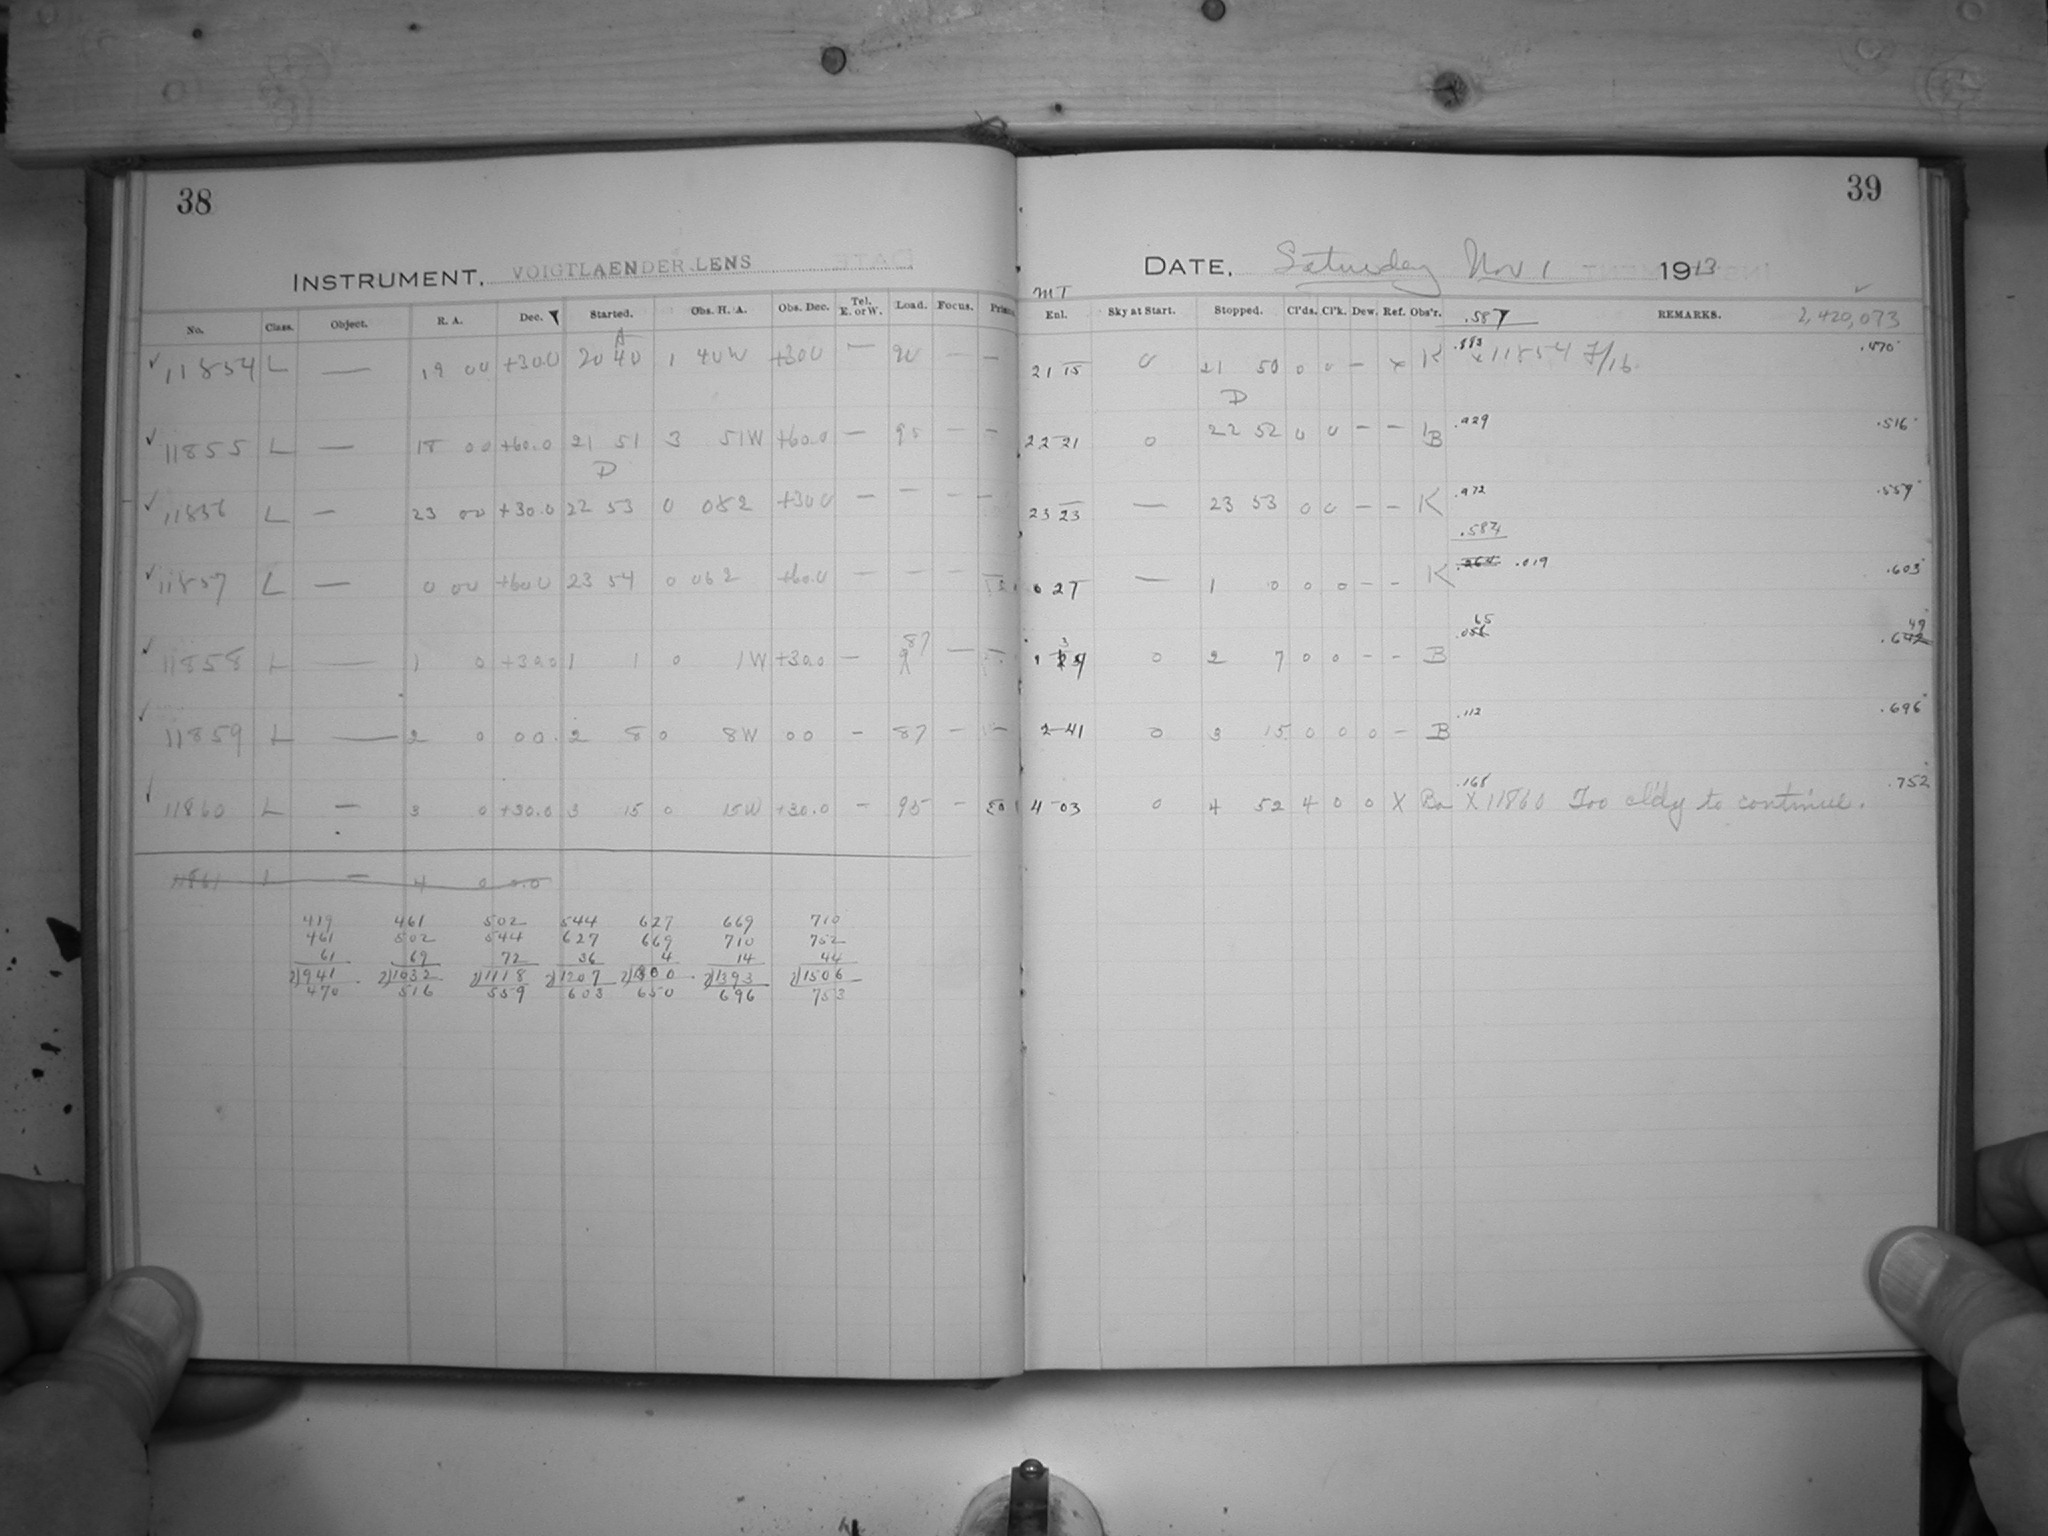 38
INSTRUMENT, VOIGTLAENDER LENS
No. Class. Object. R. A. Dec. Started. Obs. H. A. Obs. Dec. Tel. E. or W. Load. Focus.
A
✓ 11854 L — 19 00 +30.0 20 40 1 40W +30.0 — 90 — —
✓ 11855 L — 18 00 +60.0 21 51 3 51W +60.0 — 95 — —
D
✓ 11856 L — 23 00 +30.0 22 53 0 052 +30.0 — — — —
✓ 11857 L — 0 00 +60.0 23 54 0 062 +60.0 — — —
✓ 11858 L — 1 0 +30.0 1 1 0 1W +30.0 — 87 — —
✓ 11859 L — 2 0 00. 2 8 0 8W 00 — 87 — —
✓ 11860 L — 3 0 +30.0 3 15 0 15W +30.0 — 95 —
11861 L — 4 0 0.0
419 461 502 544 627 669 710
461 502 544 627 669 710 752
61 69 72 36 4 14 44
2)941 2)1032 2)1118 2)1207 2)1300 2)1393 2)1506
470 516 559 603 650 696 753
39
DATE, Saturday Nov 1 1913
MT
Enl. Sky at Start. Stopped. Cl'ds. Cl'k. Dew. Ref. Obs'r. .587 REMARKS. 2,420,073
21 15 0 21 50 0 0 — x K .893 x 11854 F/16. .470
D
22 21 0 22 52 0 0 — — B .929 .516
23 23 — 23 53 0 0 — — K .972 .559
.584
0 27 — 1 0 0 0 — — K .019 .603
0 2 7 0 0 — — B 65 49
2 41 0 3 15 0 0 0 — B .112 .696
4 03 0 4 52 4 0 0 X Ba .168 X 11860 Too cl'dy to continue. .752